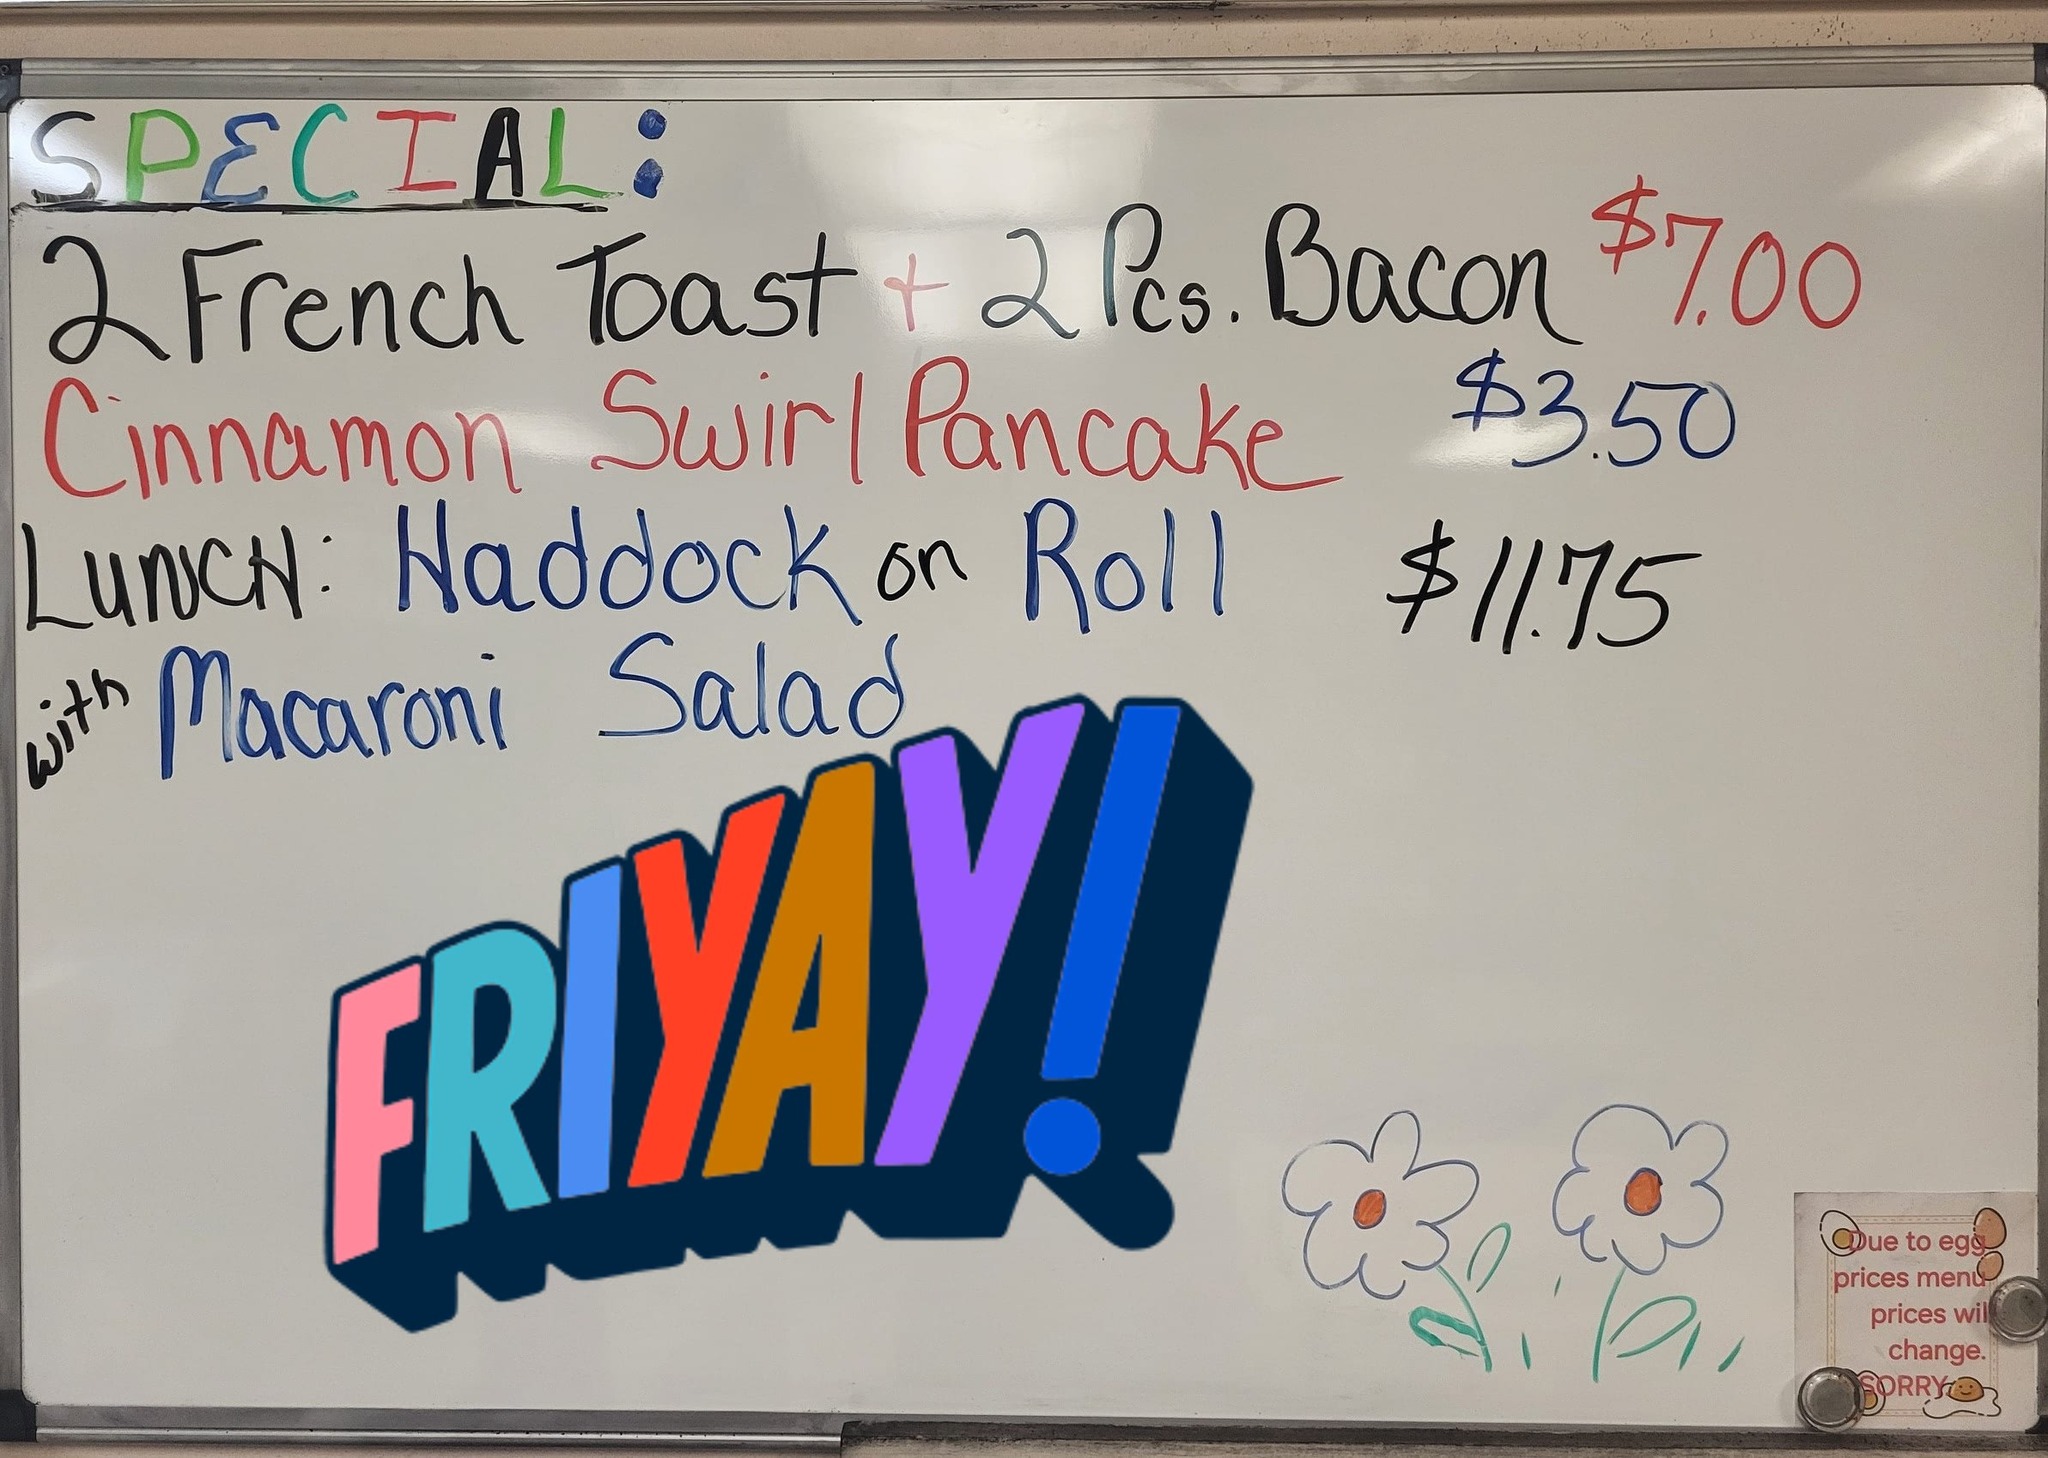 SPECIAL:
2 French Toast + 2 Pcs. Bacon $7.00
Cinnamon Swirl Pancake $3.50
LUNCH: Haddock on Roll $11.75
with Macaroni Salad
FRIYAY!
Due to egg
prices menu
prices will
change.
SORRY